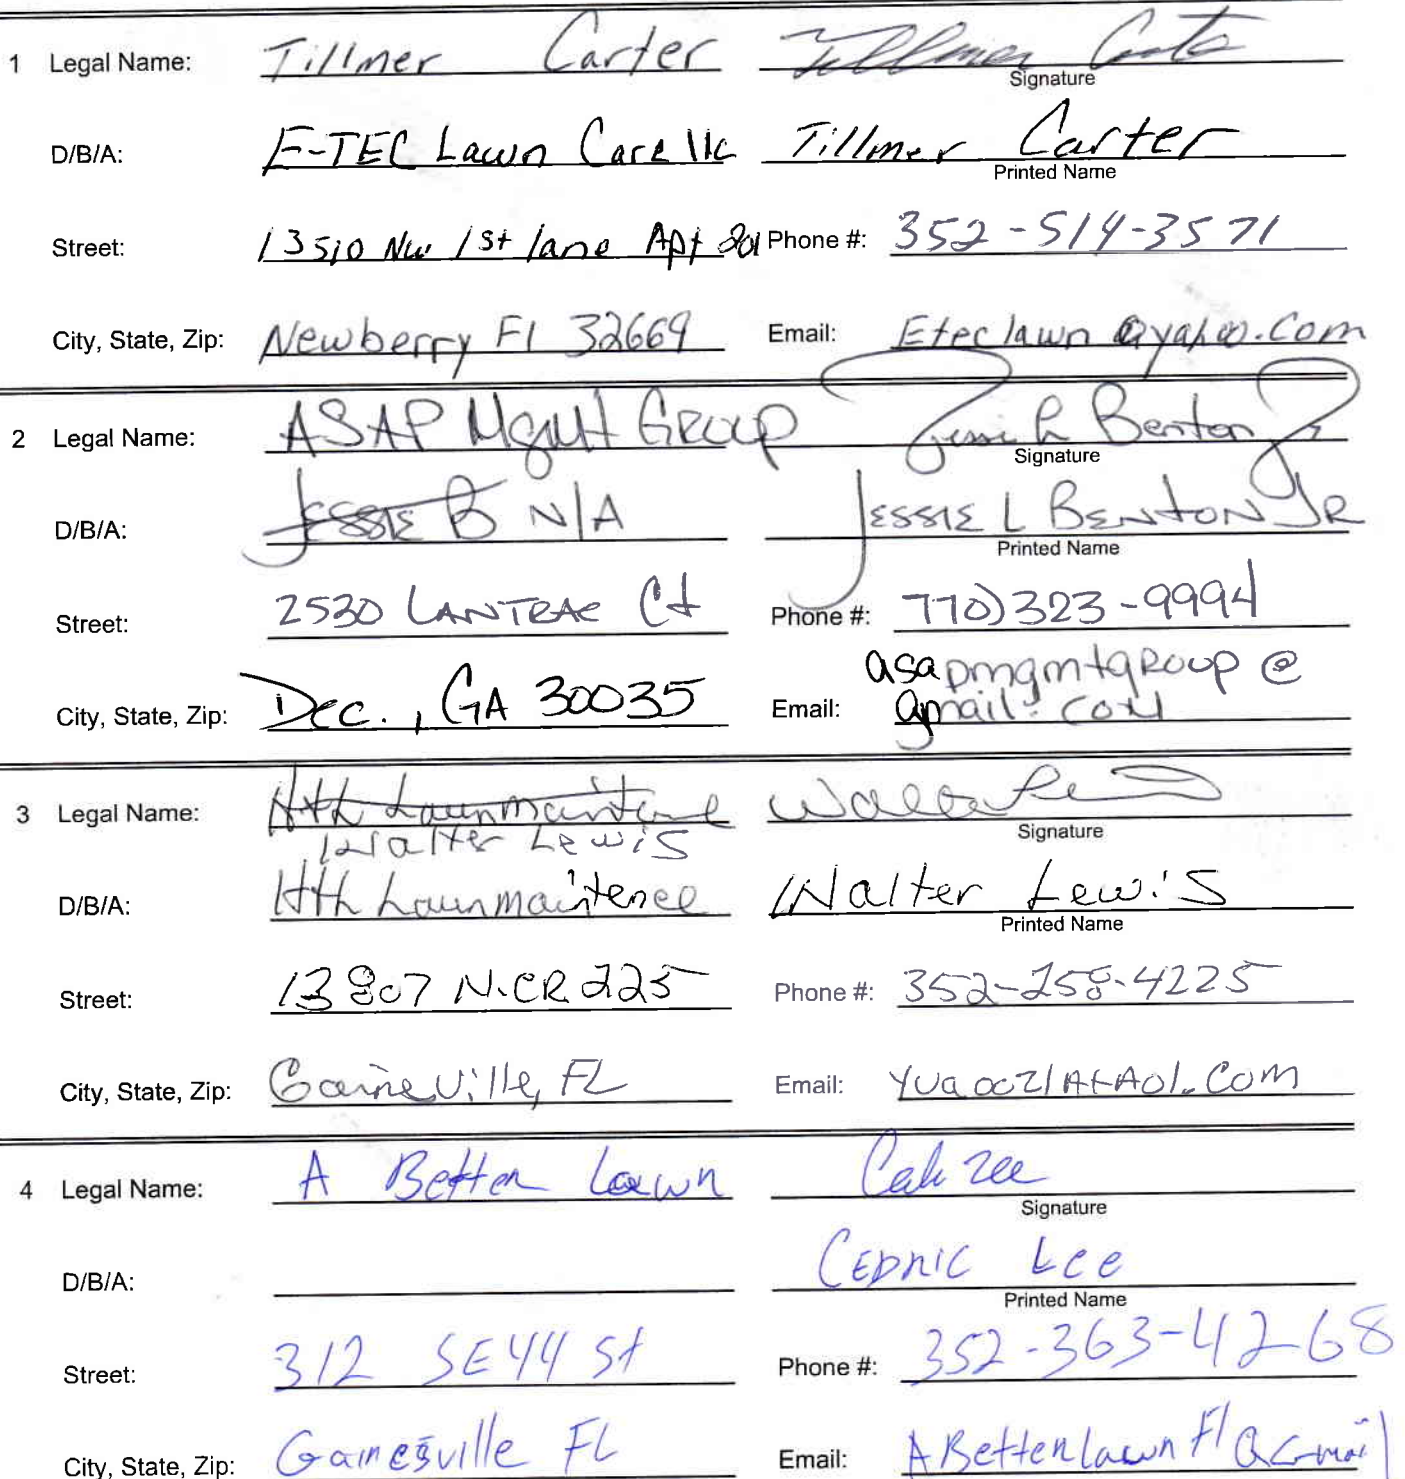 1 Legal Name: Tillmer Carter Tillmer Carter
Signature
D/B/A: E-TEC Lawn Care llc Tillmer Carter
Printed Name
Street: 13510 Nw 1st lane Apt 201 Phone #: 352-514-3571
City, State, Zip: Newberry Fl 32669 Email: Eteclawn@yahoo.com
2 Legal Name: ASAP Mgmt Group Jessie L Benton Jr
Signature
D/B/A: Jessie B N/A JESSIE L BENTON JR
Printed Name
Street: 2530 LANTRAC Ct Phone #: 770)323-9994
asapmgmtgroup@
City, State, Zip: Dec., GA 30035 Email: gmail.com
3 Legal Name: Hth Launmaintene
Walter Lewis
Signature
D/B/A: Hth Launmaintenee Walter Lewis
Printed Name
Street: 13807 N.CR 225 Phone #: 352-258-4225
City, State, Zip: Gaineville, FL Email: YUa00Z1AtAol.Com
4 Legal Name: A Better Lawn
Signature
D/B/A: CEDRIC Lee
Printed Name
Street: 312 SE 44 St Phone #: 352-363-4268
City, State, Zip: Gainesville FL Email: ABetterlawnFl@Gmail